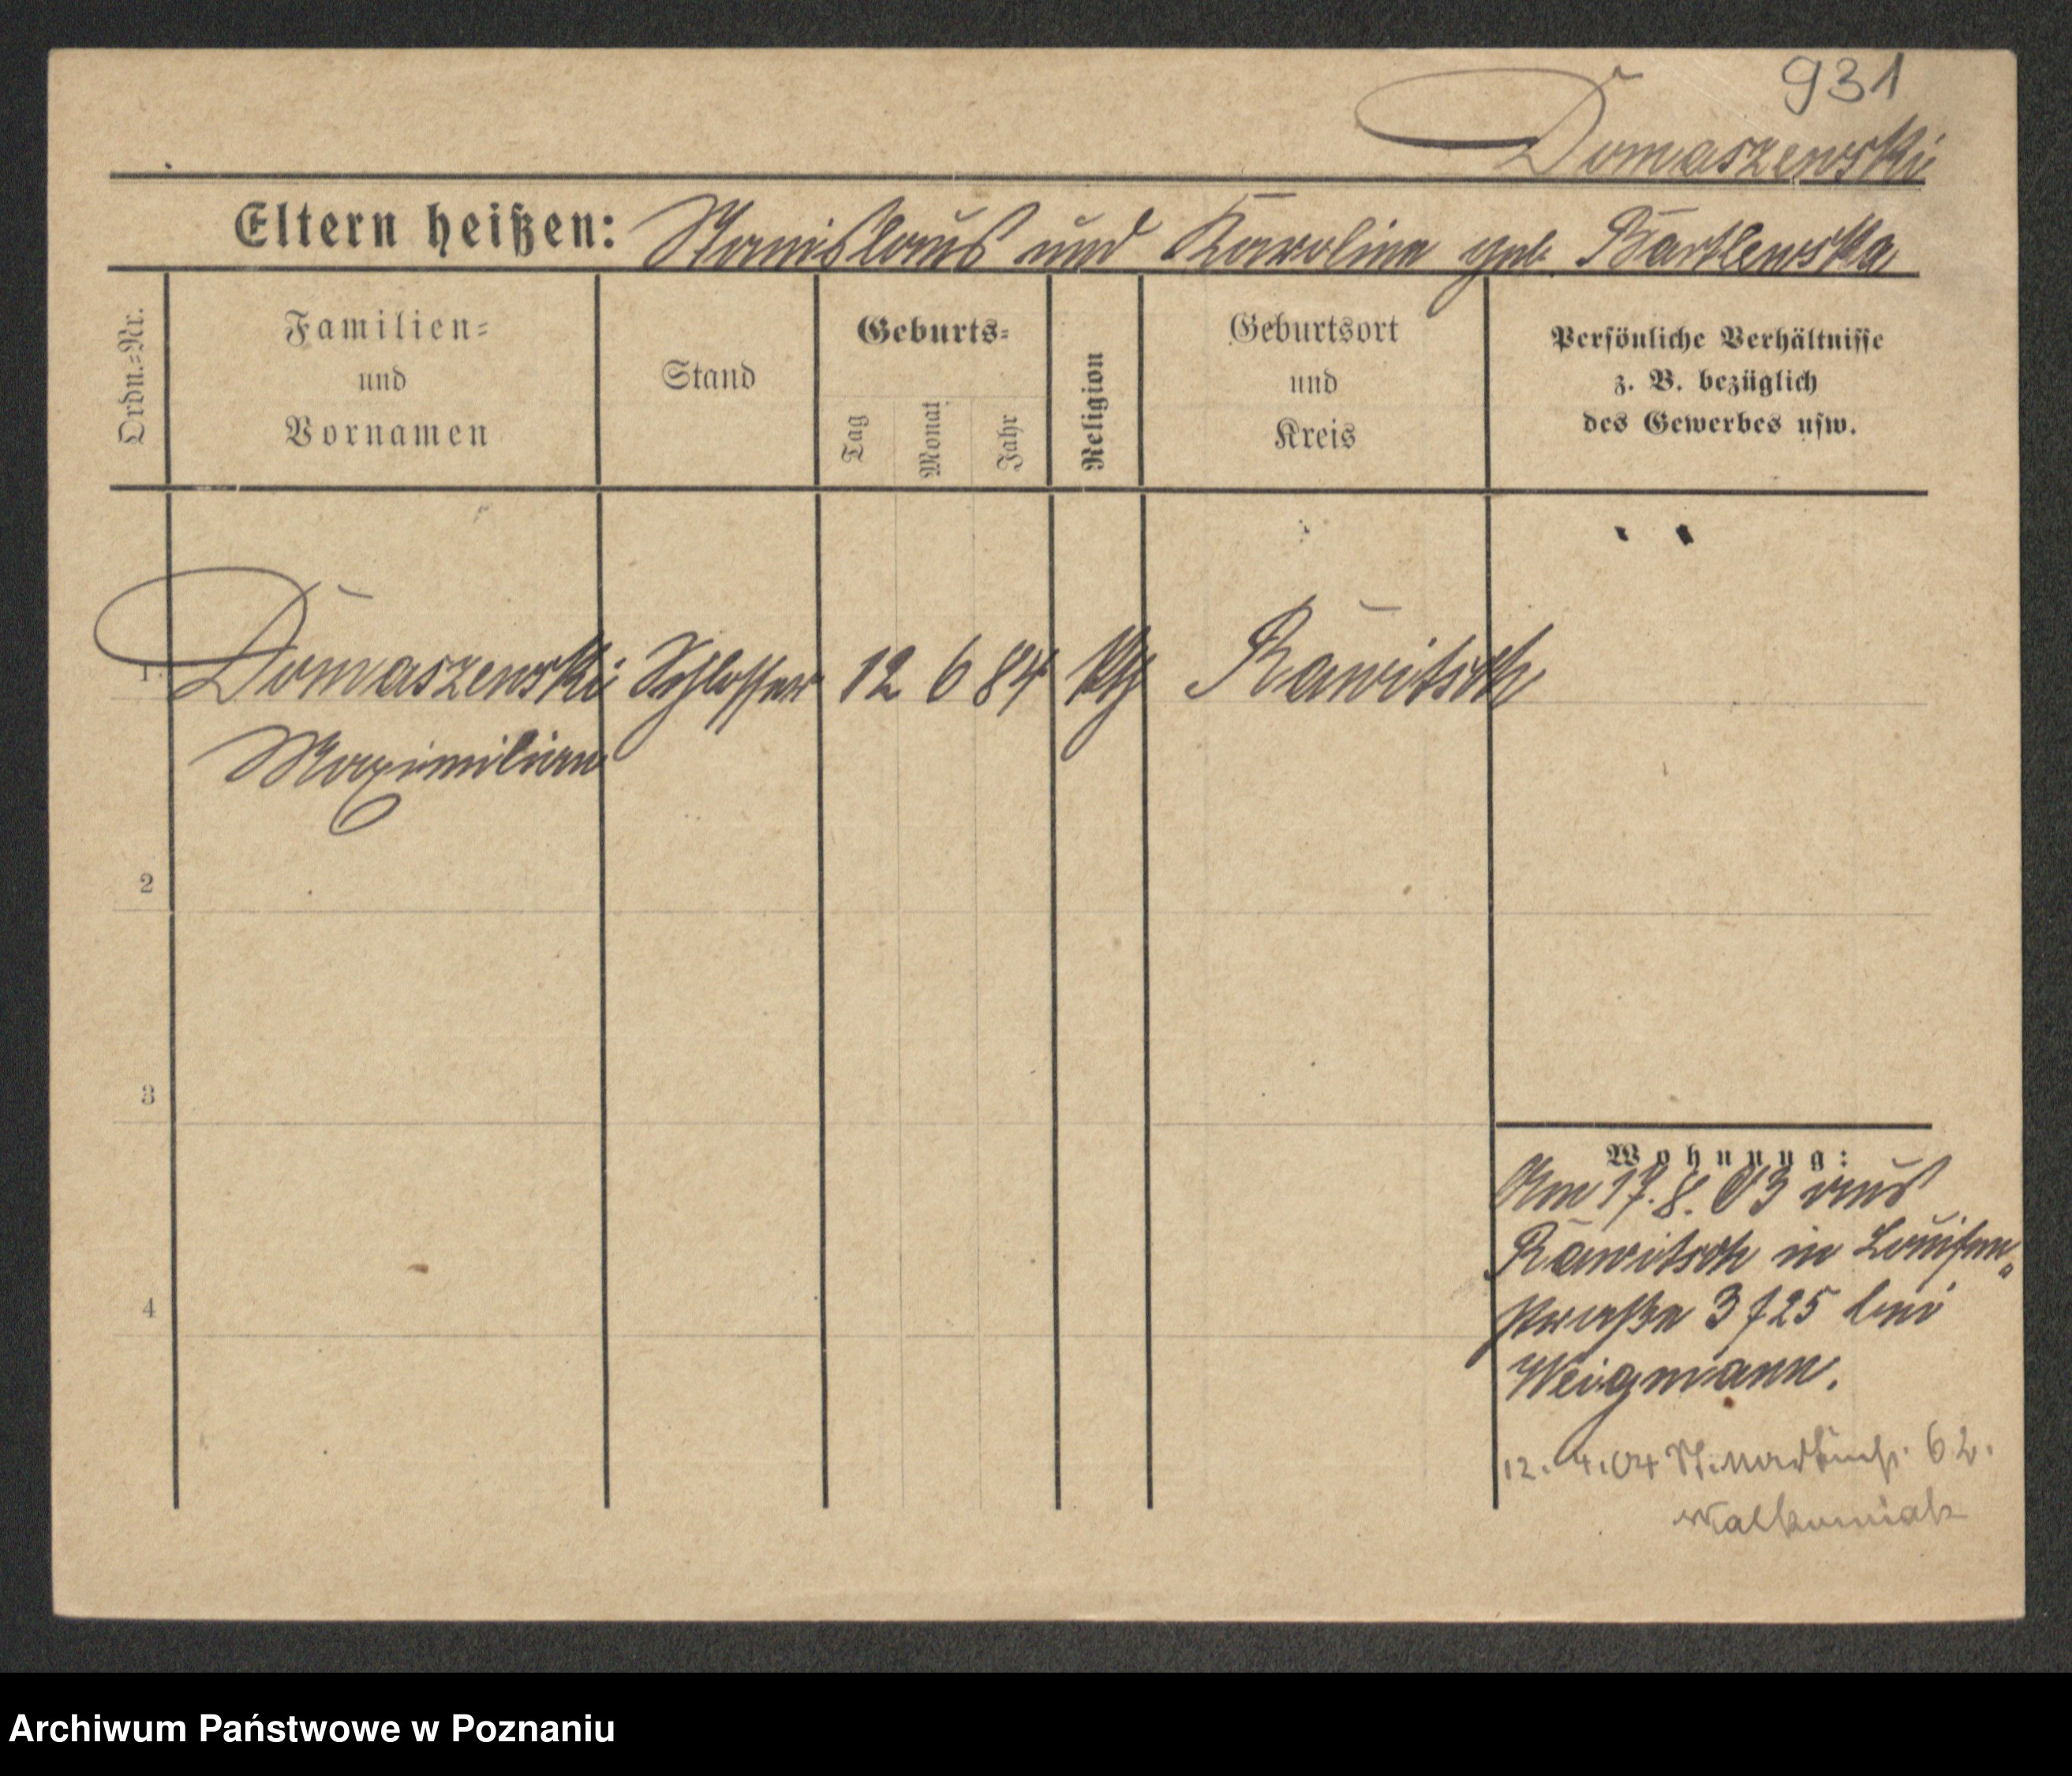 931
Domaszewski
Eltern heißen: Stanislaus und Karolina geb. Bartlewska
Ordn.=Nr.
Familien=
und
Vornamen
Stand
Geburts=
Tag
Monat
Jahr
Religion
Geburtsort
und
Kreis
Persönliche Verhältnisse
z. B. bezüglich
des Gewerbes usw.
1. Domaszewski Schlosser 12 6 84 kth Rawitsch
Maximilian
2
3
4
Wohnung:
Am 17. 8. 03 aus
Rawitsch in Louisen„
straße 3 f 25 bei
Weigmann.
12. 4. 04 62.
Archiwum Państwowe w Poznaniu